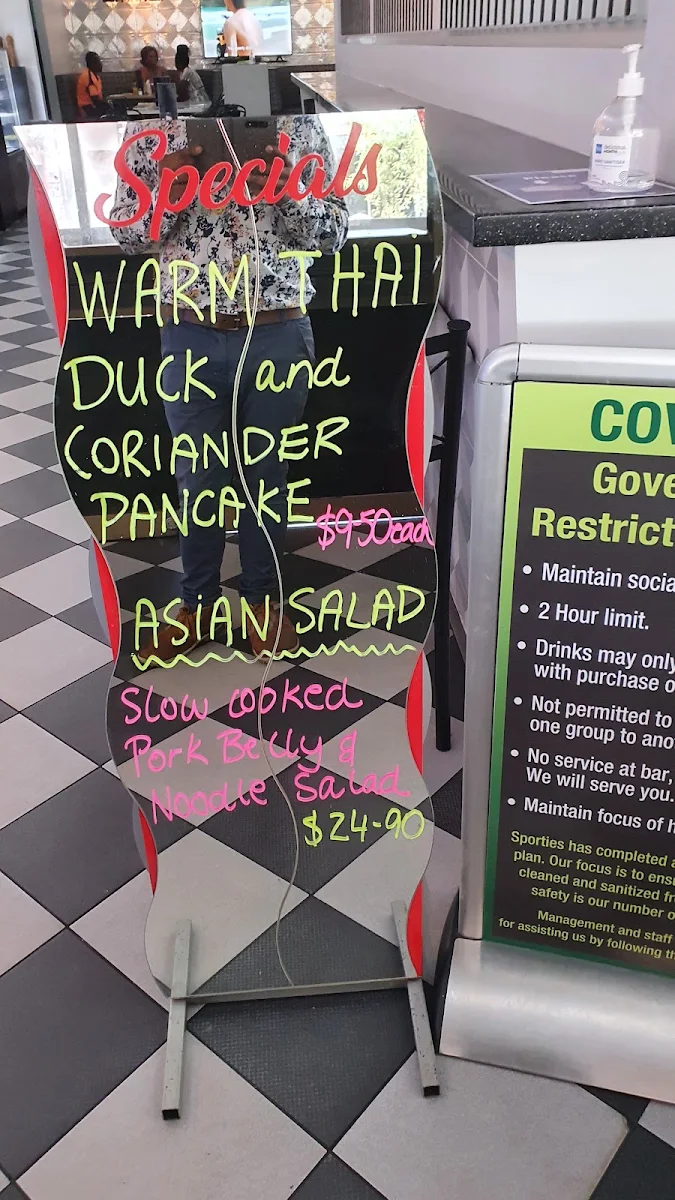 Specials
WARM THAI
DUCK and
CORIANDER
PANCAKE
$9.50each
ASIAN SALAD
Slow cooked
Pork Belly &
Noodle Salad
$24-90
COV
Gove
Restrict
• Maintain socia
• 2 Hour limit.
• Drinks may only
with purchase o
• Not permitted to
one group to ano
• No service at bar,
We will serve you.
• Maintain focus of h
Sporties has completed a
plan. Our focus is to ensu
cleaned and sanitized fr
safety is our number o
Management and staff
for assisting us by following th